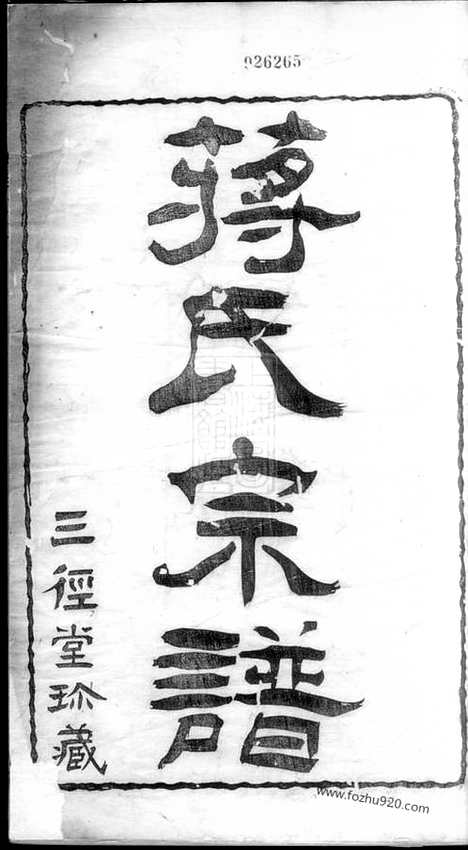 926265
蔣氏宗譜
三徑堂珎藏
www.fozhu920.com